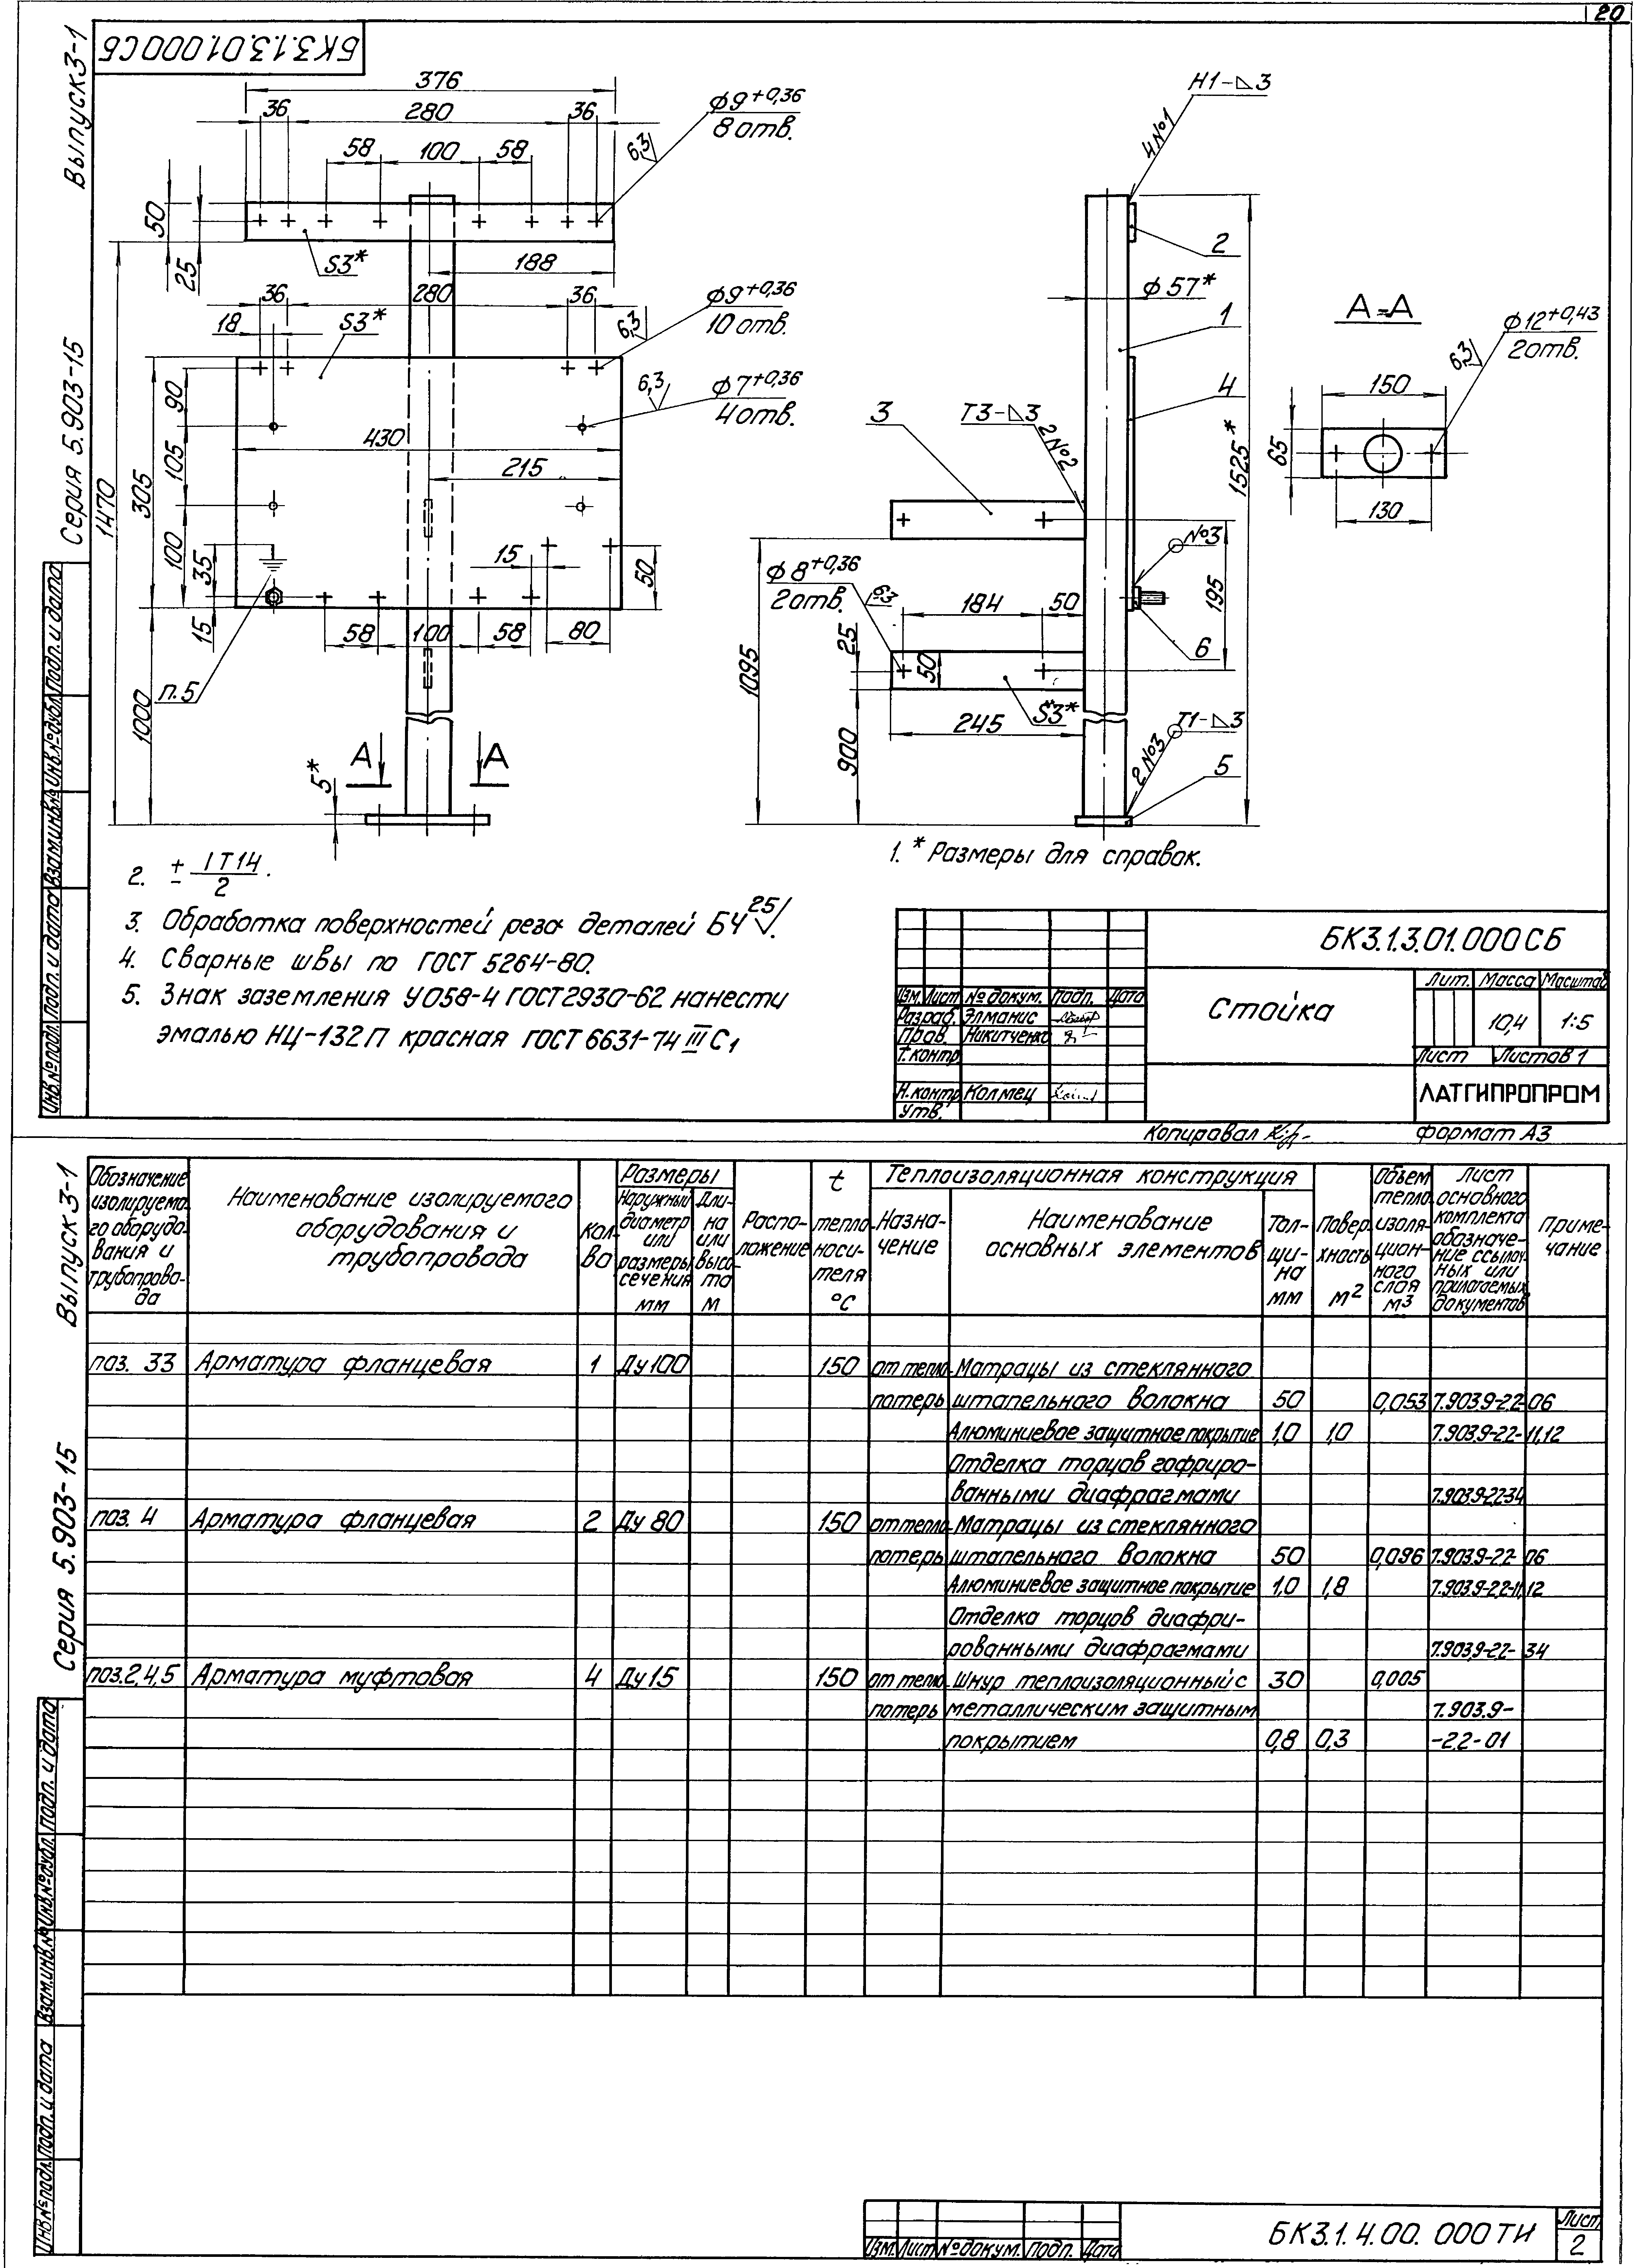 20
Выпуск 3-1
Серия 5.903-15
БК3.1.3.01.000СБ
376
36
280
36
58
100
58
φ9+0,36
8 отв.
6,3
50
25
S3*
188
36
280
36
18
S3*
φ9+0,36
10 отв.
6,3
φ7+0,36
4 отв.
6,3
90
105
100
305
1470
430
215
35
15
15
50
58
100
58
80
п.5
1000
5*
А
А
Н1-⊿3
4 №1
2
φ57*
1
4
3
Т3-⊿3
2 №2
1525*
№3
φ8+0,36
2 отв.
6,3
184
50
195
25
50
6
1095
S3*
245
900
Т1-⊿3
2 №3
5
А-А
φ12+0,43
2 отв.
6,3
150
65
130
1. * Размеры для справок.
2. ± IT14/2.
3. Обработка поверхностей реза деталей БЧ 25.
4. Сварные швы по ГОСТ 5264-80.
5. Знак заземления У058-4 ГОСТ 2930-62 нанести
эмалью НЦ-132П красная ГОСТ 6631-74 III С1
БК3.1.3.01.000СБ
Изм. Лист № докум. Подп. Дата
Разраб. Элманис
Пров. Никитченко
Т. контр
Н. контр Колмец
Утв.
Стойка
Лит. Масса Масштаб
10,4 1:5
Лист Листов 1
ЛАТГИПРОПРОМ
Копировал
Формат А3
Инв.№ подл. Подп. и дата Взам.инв.№ Инв.№ дубл. Подп. и дата
Выпуск 3-1
Серия 5.903-15
Обозначение изолируемого оборудования и трубопровода
Наименование изолируемого оборудования и трубопровода
Кол-во
Размеры
Наружный диаметр или размеры сечения мм
Длина или высота м
Расположение
t теплоносителя °С
Теплоизоляционная конструкция
Назначение
Наименование основных элементов
Толщина мм
Поверхность м2
Объем теплоизоляционного слоя м3
Лист основного комплекта обозначение ссылочных или прилагаемых документов
Примечание
поз. 33 Арматура фланцевая 1 Ду 100 150 от тепло- Матрацы из стеклянного
потерь штапельного волокна 50 0,053 7.903.9-2.2-06
Алюминиевое защитное покрытие 1,0 1,0 7.903.9-2.2-11,12
Отделка торцов гофриро-
ванными диафрагмами 7.903.9-2.2-34
поз. 4 Арматура фланцевая 2 Ду 80 150 от тепло- Матрацы из стеклянного
потерь штапельного волокна 50 0,096 7.903.9-2.2-06
Алюминиевое защитное покрытие 1,0 1,8 7.903.9-2.2-11,12
Отделка торцов диафри-
рованными диафрагмами 7.903.9-2.2-34
поз. 2,4,5 Арматура муфтовая 4 Ду 15 150 от тепло- Шнур теплоизоляционный с 30 0,005
потерь металлическим защитным 7.903.9-
покрытием 0,8 0,3 -2.2-01
Инв.№ подл. Подп. и дата Взам.инв.№ Инв.№ дубл. Подп. и дата
Изм. Лист № докум. Подп. Дата
БК3.1.4.00.000ТИ
Лист
2